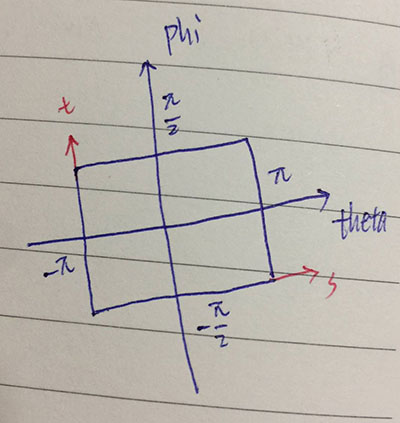 phi
π/2
t
π
theta
-π
s
-π/2